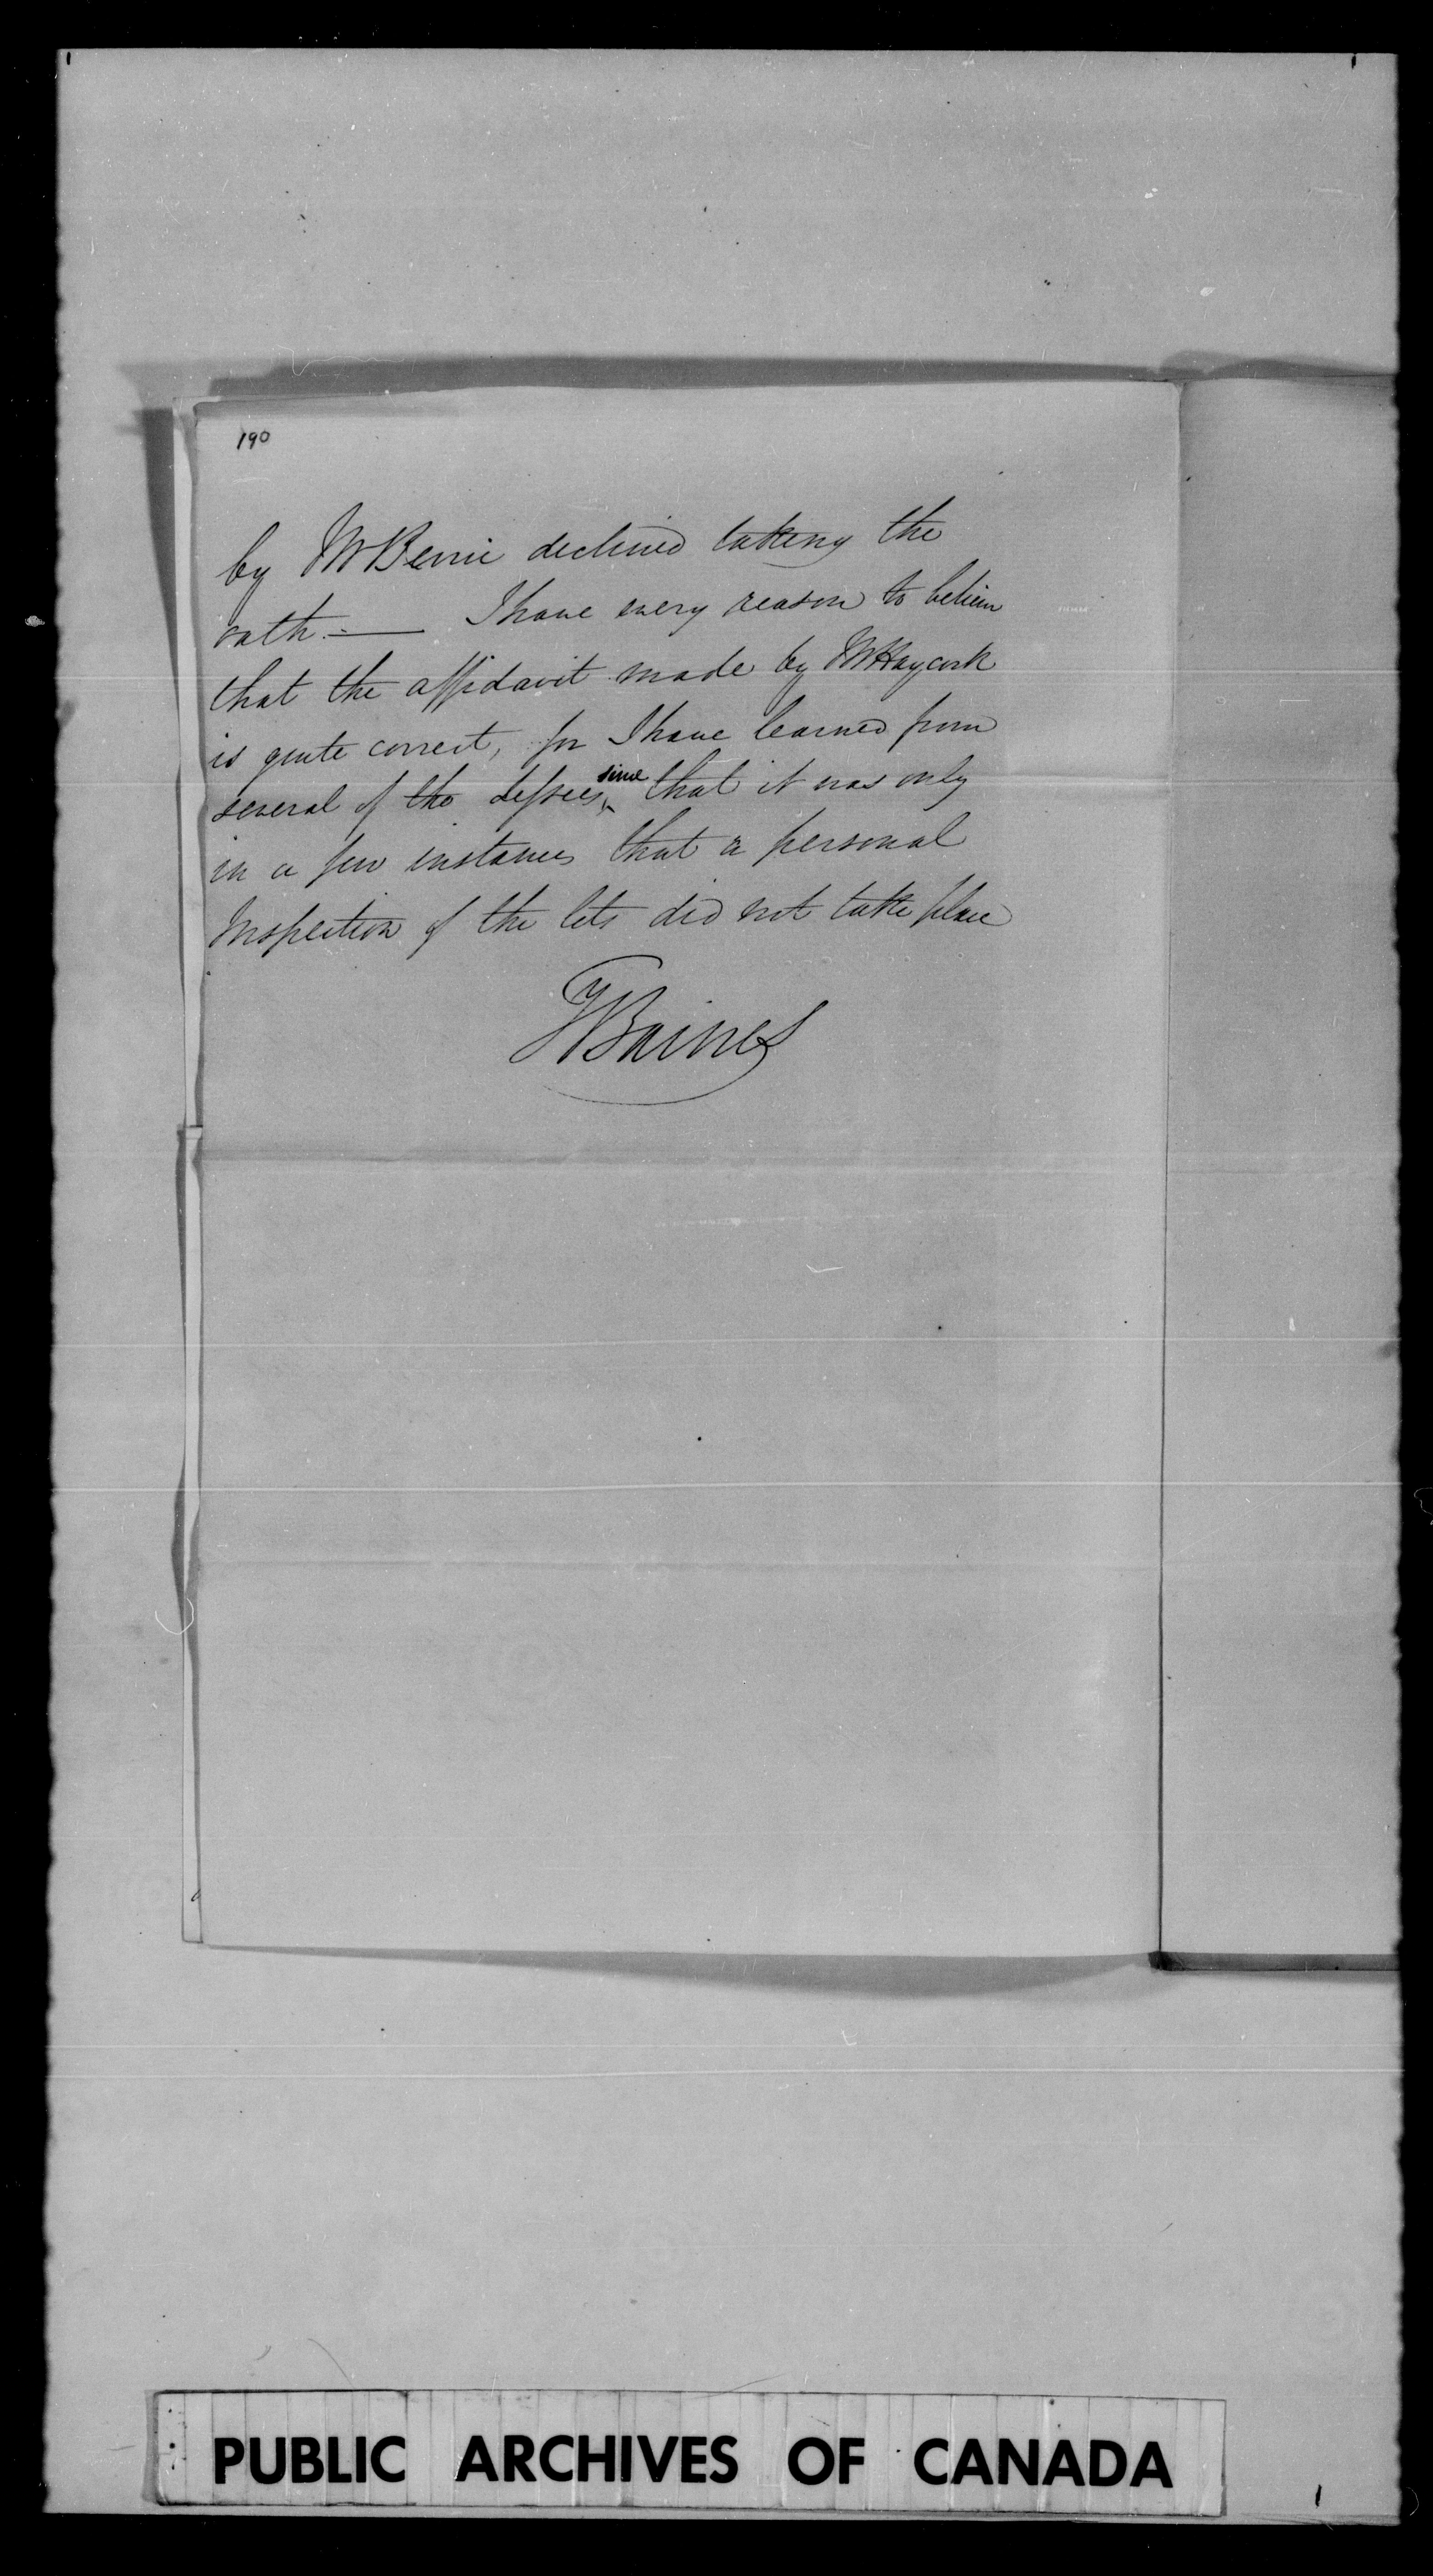 190
by Mr Bernie declined taking the
oath.— I have every reason to believe
that the affidavit made by Mr Haycock
is quite correct, for I have learned from
several of the lessees since that it was only
in a few instances that a personal
Inspection of the lots did not take place
T Baines
PUBLIC ARCHIVES OF CANADA